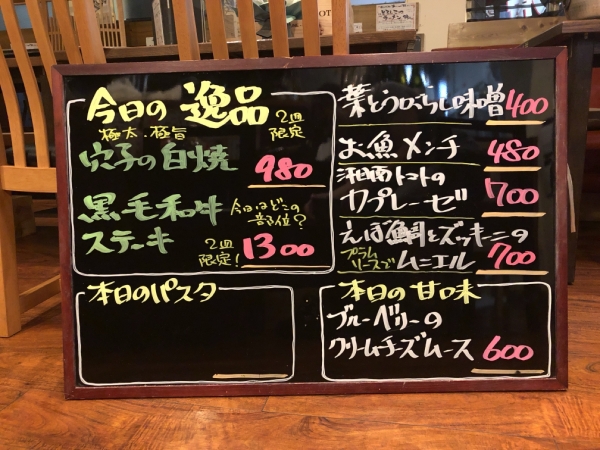 今日の 逸品
2皿
限定
極太、極旨
穴子の白焼 980
黒毛和牛 今日はどこの
部位?
ステーキ 2皿
限定! 1300
本日のパスタ
葉とうがらし味噌 400
お魚メンチ 480
湘南トマトの
カプレーゼ 700
えぼ鯛とズッキーニの
プラム
ソースで ムニエル 700
本日の甘味
ブルーベリーの
クリームチーズムース 600